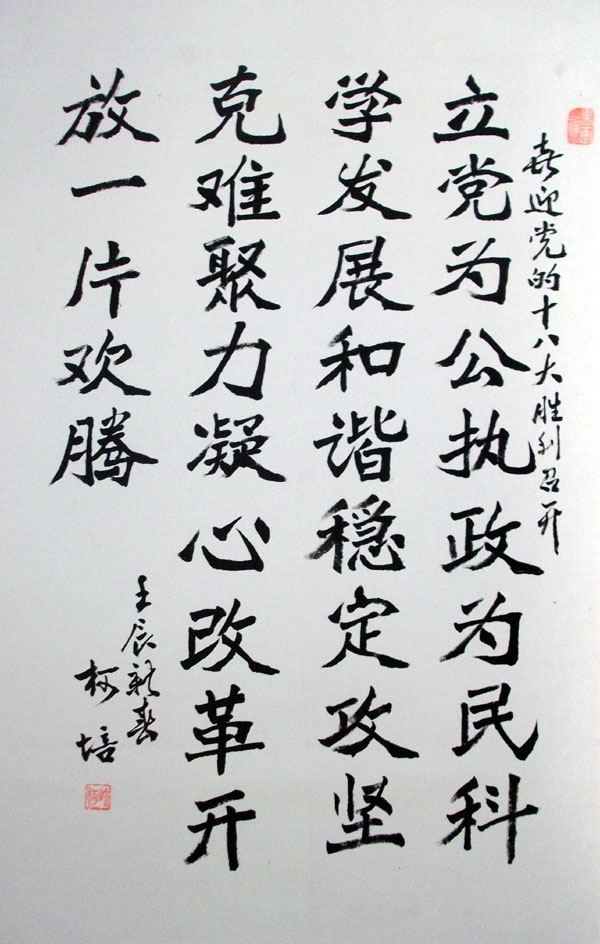 喜迎党的十八大胜利召开
立党为公执政为民科
学发展和谐稳定攻坚
克难聚力凝心改革开
放一片欢腾
壬辰新春
柯培